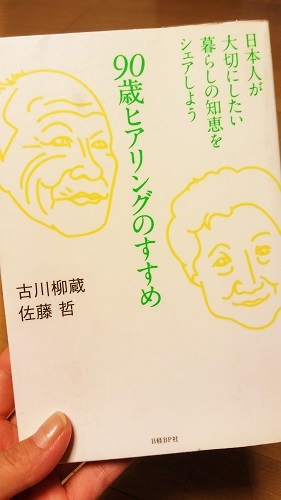 日本人が
大切にしたい
暮らしの知恵を
シェアしよう
90歳ヒアリングのすすめ
古川柳蔵
佐藤 哲
日経BP社